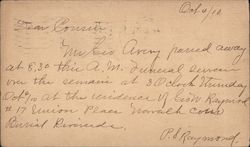 Oct 9/12
Dear Cousin
Mr Geo Avery passed away
at 8.30 this A.M. Funeral services
over the remains at 3 O'clock Thursday
Oct 10 at the residence of Raymond
# 17 Union Place Norwalk Conn
Burial Riverside.
P.S Raymond